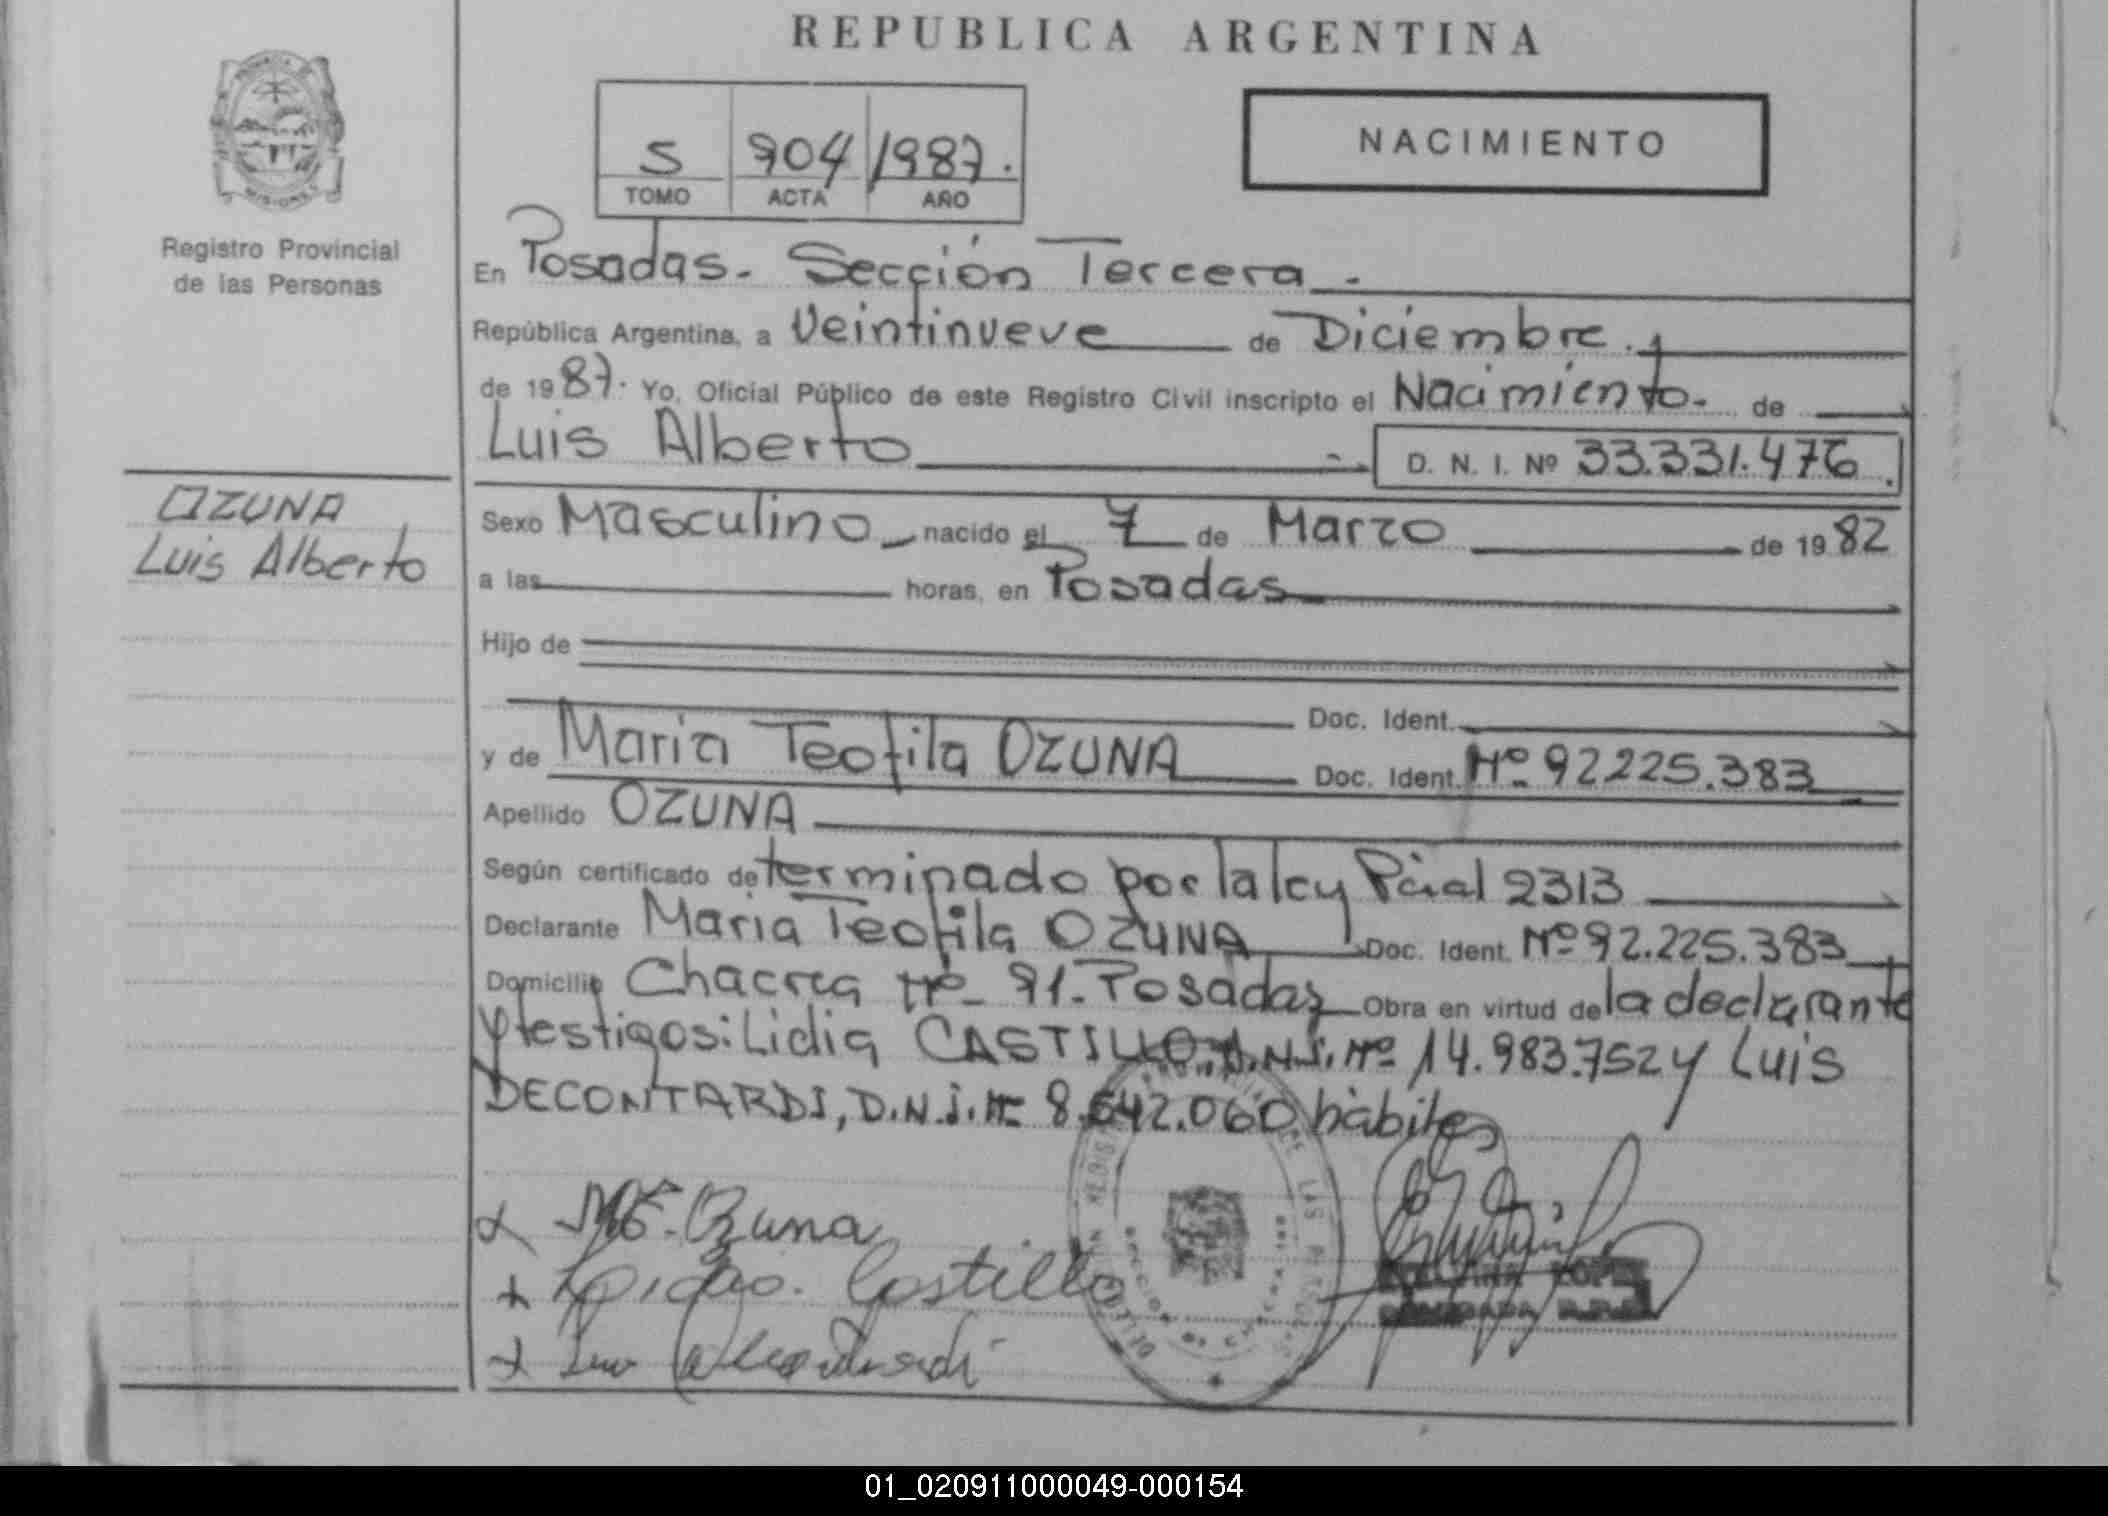 REPUBLICA ARGENTINA
5 904 1987.
TOMO ACTA AÑO
NACIMIENTO
Registro Provincial
de las Personas
En Posadas. Sección Tercera.
República Argentina, a Veintinueve de Diciembre.
de 1987. Yo, Oficial Público de este Registro Civil inscripto el Nacimiento. de
Luis Alberto D. N. I. Nº 33.331.476.
OZUNA
Luis Alberto
Sexo Masculino nacido el 7 de Marzo de 1982
a las horas, en Posadas
Hijo de
Doc. Ident.
y de Maria Teofila OZUNA Doc. Ident. Nº 92225.383
Apellido OZUNA
Según certificado determinado por la ley Pcial 2313
Declarante Maria Teofila OZUNA Doc. Ident. Nº 92.225.383
Domicilio Chacra Nº 91. Posadas Obra en virtud de la declarante
y testigos: Lidia CASTILLO. D.N.I. Nº 14.983.752 y Luis
DECONTARDI, D.N.I. Nº 8.542.060 hábiles
Ozuna
Castillo
01_020911000049-000154